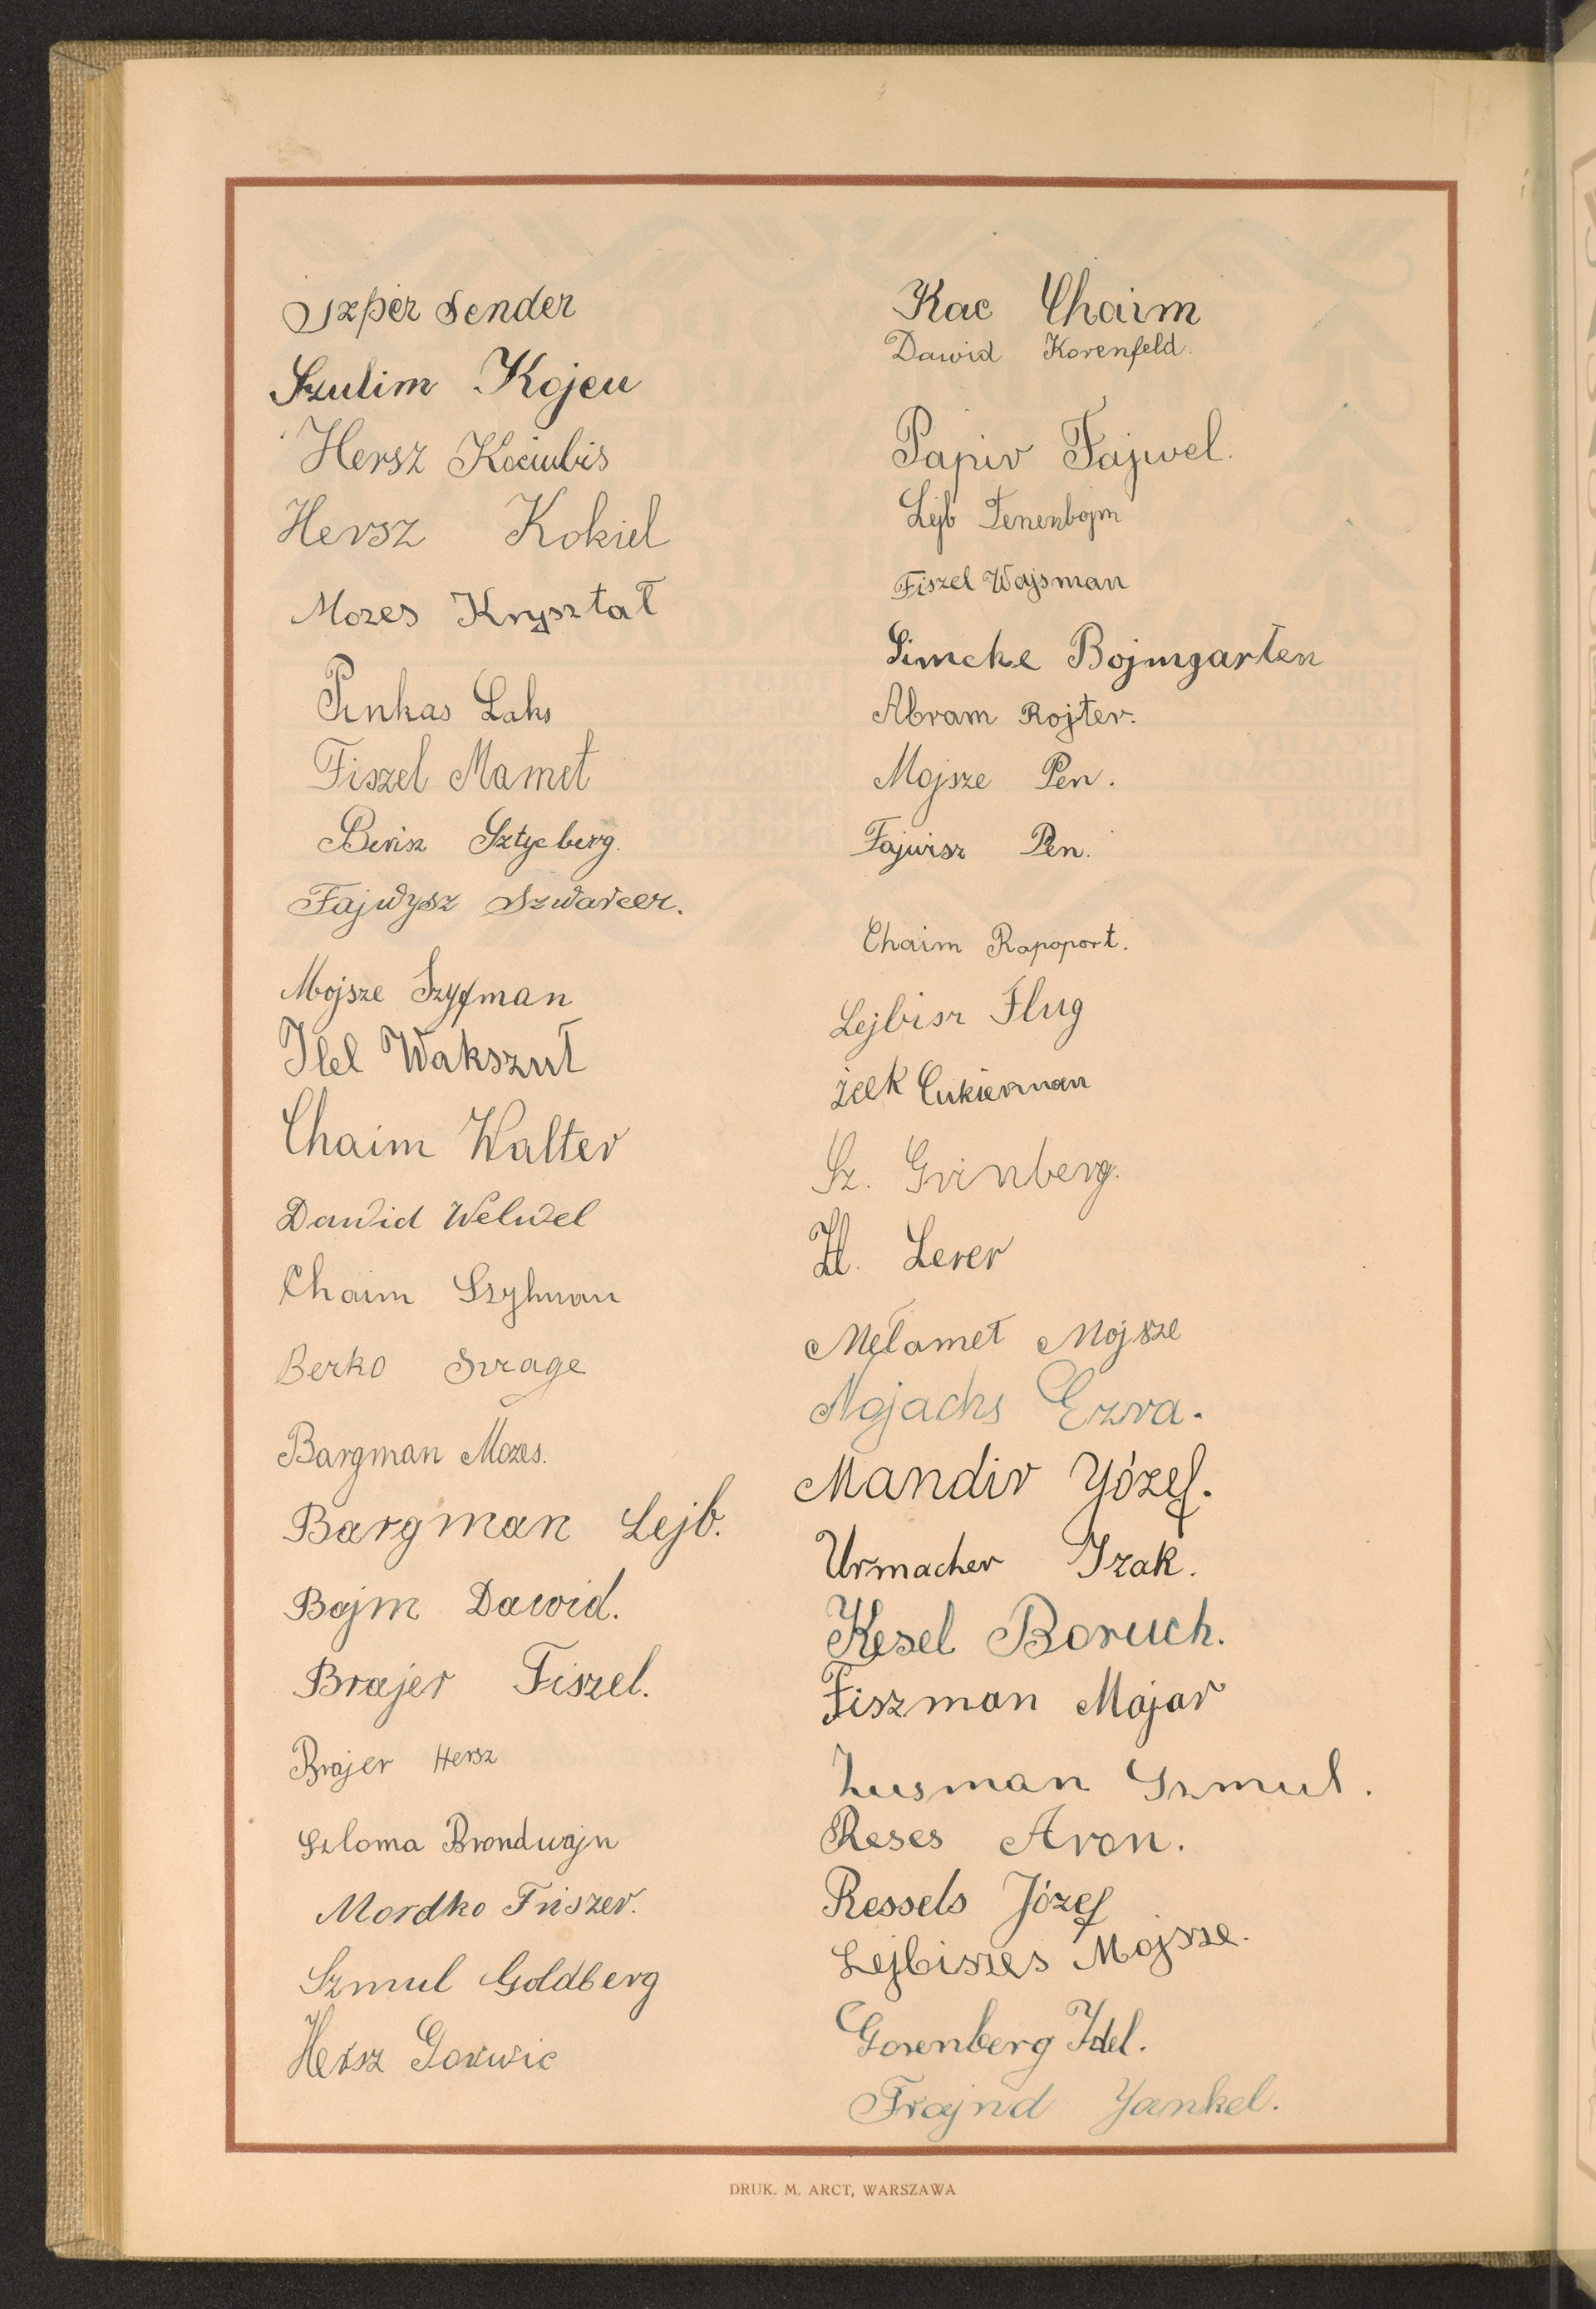 Szper Sender
Szulim Kojeu
Hersz Kociubis
Hersz Kokiel
Mozes Kryształ
Pinkas Laks
Fiszel Mamet
Berisz Sztycberg.
Fajwysz Szwarcer.
Mojsze Szyfman
Idel Wakszut
Chaim Walter
Dawid Welwel
Chaim
Berko
Bargman Mozes.
Bargman Lejb.
Bojm Dawid.
Brajer Fiszel.
Brajer Hersz
Szloma Brondwajn
Mordko Friszer.
Szmul Goldberg
Hersz Gorwic
Kac Chaim
Dawid Korenfeld.
Papir Fajwel.
Lejb Tenenbojm
Fiszel Wajsman
Simcke Bojmgarten
Abram Rojter.
Mojsze Pen.
Fajwisz Pen.
Chaim Rapoport.
Lejbisz Flug
Icek Cukierman
Sz. Grinberg.
H. Lerer
Mełamet Mojsze
Nojachs Ezra.
Mandir Józef.
Urmacher Izak.
Kesel Boruch.
Fiszman Majar
Zusman Szmul.
Reses Aron.
Ressels Józef
Lejbiszes Mojsze.
Gorenberg Idel.
Frajnd Yankel.
DRUK. M. ARCT, WARSZAWA